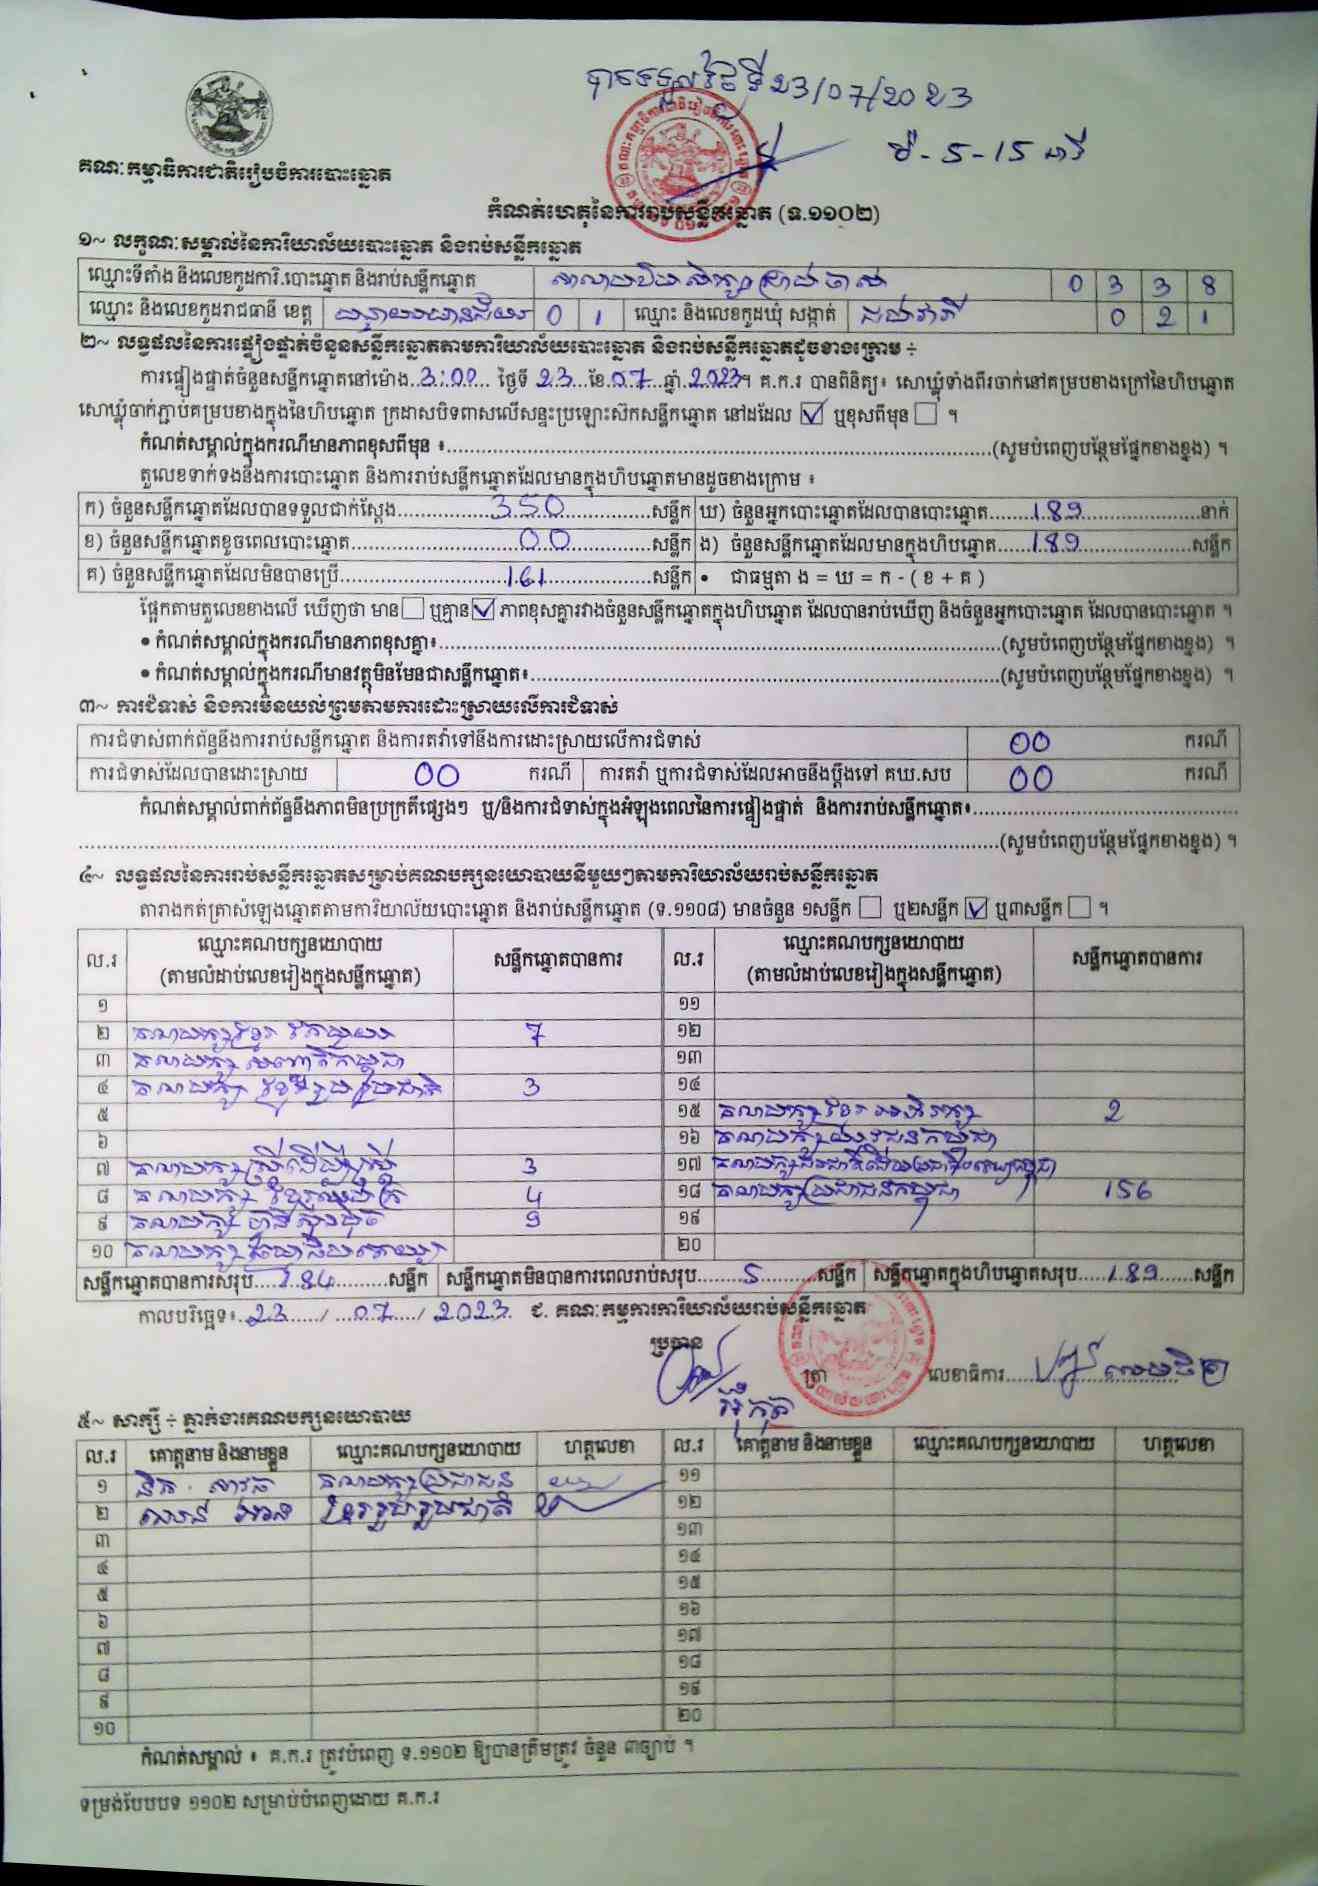 បានទទួលថ្ងៃទី 23/07/2023
ម៉-5-15 នាទី
គណៈកម្មាធិការជាតិរៀបចំការបោះឆ្នោត
កំណត់ហេតុនៃការរាប់សន្លឹកឆ្នោត (ទ.១១០២)
១~ លក្ខណៈសម្គាល់នៃការិយាល័យបោះឆ្នោត និងរាប់សន្លឹកឆ្នោត
ឈ្មោះទីតាំង និងលេខកូដការិ.បោះឆ្នោត និងរាប់សន្លឹកឆ្នោត 0 3 3 8
ឈ្មោះ និងលេខកូដរាជធានី ខេត្ត បន្ទាយមានជ័យ 0 1 ឈ្មោះ និងលេខកូដឃុំ សង្កាត់ 0 2 1
២~ លទ្ធផលនៃការផ្ទៀងផ្ទាត់ចំនួនសន្លឹកឆ្នោតតាមការិយាល័យបោះឆ្នោត និងរាប់សន្លឹកឆ្នោតដូចខាងក្រោម ÷
ការផ្ទៀងផ្ទាត់ចំនួនសន្លឹកឆ្នោតនៅម៉ោង 3:00 ថ្ងៃទី 23 ខែ 07 ឆ្នាំ 2023។ គ.ក.រ បានពិនិត្យ៖ សោឃ្លុំទាំងពីរចាក់នៅគម្របខាងក្រៅនៃហិបឆ្នោត
សោឃ្លុំចាក់ភ្ជាប់គម្របខាងក្នុងនៃហិបឆ្នោត ក្រដាសបិទពាសលើសន្ទះប្រឡោះស៊កសន្លឹកឆ្នោត នៅដដែល ☑ ឬខុសពីមុន ☐ ។
កំណត់សម្គាល់ក្នុងករណីមានភាពខុសពីមុន ៖ (សូមបំពេញបន្ថែមផ្នែកខាងខ្នង) ។
តួលេខទាក់ទងនឹងការបោះឆ្នោត និងការរាប់សន្លឹកឆ្នោតដែលមានក្នុងហិបឆ្នោតមានដូចខាងក្រោម ៖
ក) ចំនួនសន្លឹកឆ្នោតដែលបានទទួលជាក់ស្តែង 350 សន្លឹក ឃ) ចំនួនអ្នកបោះឆ្នោតដែលបានបោះឆ្នោត 189 នាក់
ខ) ចំនួនសន្លឹកឆ្នោតខូចពេលបោះឆ្នោត 00 សន្លឹក ង) ចំនួនសន្លឹកឆ្នោតដែលមានក្នុងហិបឆ្នោត 189 សន្លឹក
គ) ចំនួនសន្លឹកឆ្នោតដែលមិនបានប្រើ 161 សន្លឹក • ជាធម្មតា ង = ឃ = ក - ( ខ + គ )
ផ្អែកតាមតួលេខខាងលើ ឃើញថា មាន ☐ ឬគ្មាន ☑ ភាពខុសគ្នារវាងចំនួនសន្លឹកឆ្នោតក្នុងហិបឆ្នោត ដែលបានរាប់ឃើញ និងចំនួនអ្នកបោះឆ្នោត ដែលបានបោះឆ្នោត ។
• កំណត់សម្គាល់ក្នុងករណីមានភាពខុសគ្នា៖ (សូមបំពេញបន្ថែមផ្នែកខាងខ្នង) ។
• កំណត់សម្គាល់ក្នុងករណីមានវត្ថុមិនមែនជាសន្លឹកឆ្នោត៖ (សូមបំពេញបន្ថែមផ្នែកខាងខ្នង) ។
៣~ ការជំទាស់ និងការមិនយល់ព្រមតាមការដោះស្រាយលើការជំទាស់
ការជំទាស់ពាក់ព័ន្ធនឹងការរាប់សន្លឹកឆ្នោត និងការតវ៉ាទៅនឹងការដោះស្រាយលើការជំទាស់ 00 ករណី
ការជំទាស់ដែលបានដោះស្រាយ 00 ករណី ការតវ៉ា ឬការជំទាស់ដែលអាចនឹងប្តឹងទៅ គឃ.សប 00 ករណី
កំណត់សម្គាល់ពាក់ព័ន្ធនឹងភាពមិនប្រក្រតីផ្សេងៗ ឬ/និងការជំទាស់ក្នុងអំឡុងពេលនៃការផ្ទៀងផ្ទាត់ និងការរាប់សន្លឹកឆ្នោត៖
(សូមបំពេញបន្ថែមផ្នែកខាងខ្នង) ។
៤~ លទ្ធផលនៃការរាប់សន្លឹកឆ្នោតសម្រាប់គណបក្សនយោបាយនីមួយៗតាមការិយាល័យរាប់សន្លឹកឆ្នោត
តារាងកត់ត្រាសំឡេងឆ្នោតតាមការិយាល័យបោះឆ្នោត និងរាប់សន្លឹកឆ្នោត (ទ.១១០៨) មានចំនួន ១សន្លឹក ☐ ឬ២សន្លឹក ☑ ឬ៣សន្លឹក ☐ ។
ល.រ ឈ្មោះគណបក្សនយោបាយ (តាមលំដាប់លេខរៀងក្នុងសន្លឹកឆ្នោត) សន្លឹកឆ្នោតបានការ ល.រ ឈ្មោះគណបក្សនយោបាយ (តាមលំដាប់លេខរៀងក្នុងសន្លឹកឆ្នោត) សន្លឹកឆ្នោតបានការ
១ ១១
២ គណបក្សខ្មែរ 7 ១២
៣ គណបក្ស ១៣
៤ គណបក្ស ខ្មែររួបរួមជាតិ 3 ១៤
៥ ១៥ គណបក្សខ្មែរអភិរក្ស 2
៦ ១៦ គណបក្សយុវជនកម្ពុជា
៧ គណបក្សស្ត្រីដើម្បីស្ត្រី 3 ១៧ គណបក្ស
៨ គណបក្ស 4 ១៨ គណបក្សប្រជាជនកម្ពុជា 156
៩ គណបក្ស ហ៊្វុនស៊ិនប៉ិច 9 ១៩
១០ គណបក្ស ២០
សន្លឹកឆ្នោតបានការសរុប 184 សន្លឹក សន្លឹកឆ្នោតមិនបានការពេលរាប់សរុប 5 សន្លឹក សន្លឹកឆ្នោតក្នុងហិបឆ្នោតសរុប 189 សន្លឹក
កាលបរិច្ឆេទ៖ 23 / 07 / 2023 ជ. គណៈកម្មការការិយាល័យរាប់សន្លឹកឆ្នោត
ប្រធាន
ត្រា លេខាធិការ
៥~ សាក្សី ÷ ភ្នាក់ងារគណបក្សនយោបាយ
ល.រ គោត្តនាម និងនាមខ្លួន ឈ្មោះគណបក្សនយោបាយ ហត្ថលេខា ល.រ គោត្តនាម និងនាមខ្លួន ឈ្មោះគណបក្សនយោបាយ ហត្ថលេខា
១ គណបក្សប្រជាជន ១១
២ ខ្មែររួបរួមជាតិ ១២
៣ ១៣
៤ ១៤
៥ ១៥
៦ ១៦
៧ ១៧
៨ ១៨
៩ ១៩
១០ ២០
កំណត់សម្គាល់ ៖ គ.ក.រ ត្រូវបំពេញ ទ.១១០២ ឱ្យបានត្រឹមត្រូវ ចំនួន ៣ច្បាប់ ។
ទម្រង់បែបបទ ១១០២ សម្រាប់បំពេញដោយ គ.ក.រ